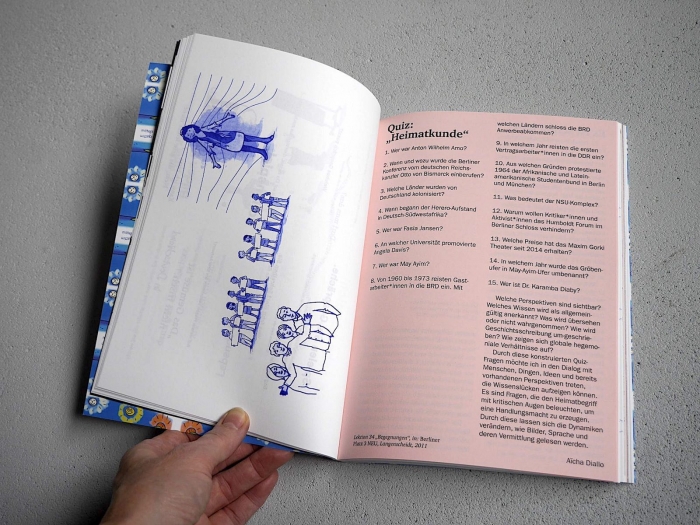 Quiz:
„Heimatkunde“
1. Wer war Anton Wilhelm Amo?
2. Wann und wozu wurde die Berliner
Konferenz vom deutschen Reichs-
kanzler Otto von Bismarck einberufen?
3. Welche Länder wurden von
Deutschland kolonisiert?
4. Wann begann der Herero-Aufstand
in Deutsch-Südwestafrika?
5. Wer war Fasia Jansen?
6. An welcher Universität promovierte
Angela Davis?
7. Wer war May Ayim?
8. Von 1960 bis 1973 reisten Gast-
arbeiter*innen in die BRD ein. Mit
welchen Ländern schloss die BRD
Anwerbeabkommen?
9. In welchem Jahr reisten die ersten
Vertragsarbeiter*innen in die DDR ein?
10. Aus welchen Gründen protestierte
1964 der Afrikanische und Latein-
amerikanische Studentenbund in Berlin
und München?
11. Was bedeutet der NSU-Komplex?
12. Warum wollen Kritiker*innen und
Aktivist*innen das Humboldt Forum im
Berliner Schloss verhindern?
13. Welche Preise hat das Maxim Gorki
Theater seit 2014 erhalten?
14. In welchem Jahr wurde das Gröben-
ufer in May-Ayim-Ufer umbenannt?
15. Wer ist Dr. Karamba Diaby?
Welche Perspektiven sind sichtbar?
Welches Wissen wird als allgemein-
gültig anerkannt? Was wird übersehen
oder nicht wahrgenommen? Wie wird
Geschichtsschreibung um-geschrie-
ben? Wie zeigen sich globale hegemo-
niale Verhältnisse auf?
Durch diese konstruierten Quiz-
Fragen möchte ich in den Dialog mit
Menschen, Dingen, Ideen und bereits
vorhandenen Perspektiven treten,
die Wissenslücken aufzeigen können.
Es sind Fragen, die den Heimatbegriff
mit kritischen Augen beleuchten, um
eine Handlungsmacht zu erzeugen.
Durch diese lassen sich die Dynamiken
verändern, wie Bilder, Sprache und
deren Vermittlung gelesen werden.
Aïcha Diallo
Lektion 24 „Begegnungen“, in: Berliner
Platz 3 NEU, Langenscheidt, 2011